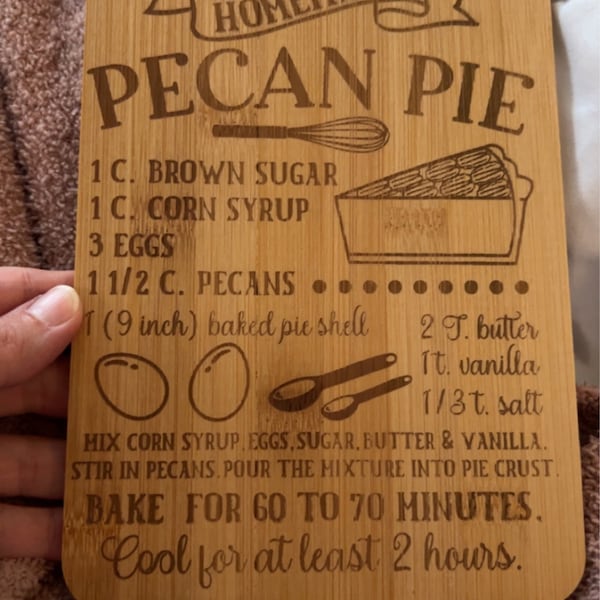 PECAN PIE
1 C. BROWN SUGAR
1 C. CORN SYRUP
3 EGGS
1 1/2 C. PECANS
1 (9 inch) baked pie shell
2 T. butter
1 t. vanilla
1/3 t. salt
MIX CORN SYRUP, EGGS, SUGAR, BUTTER & VANILLA.
STIR IN PECANS. POUR THE MIXTURE INTO PIE CRUST.
BAKE FOR 60 TO 70 MINUTES.
Cool for at least 2 hours.